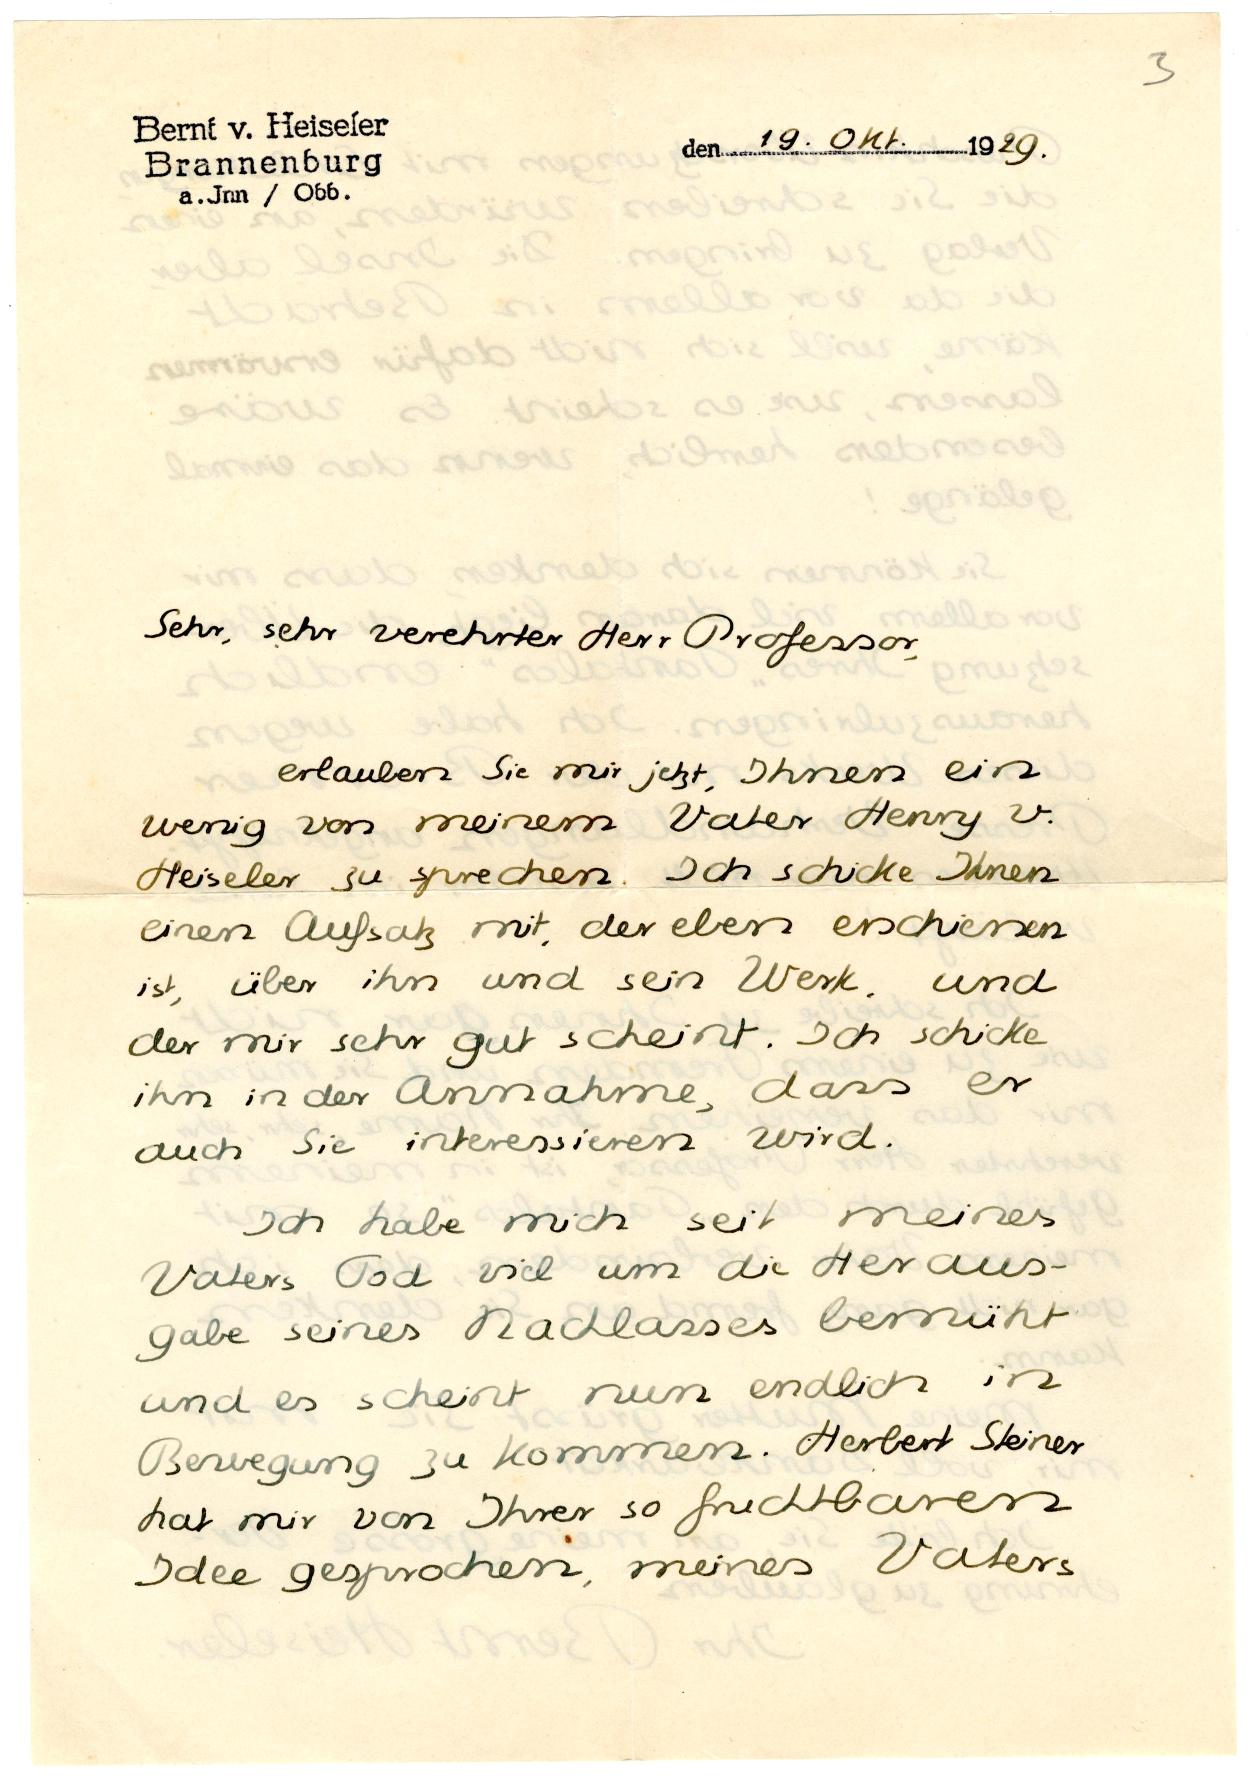 3
Bernt v. Heiseler
Brannenburg
a.Jnn / Obb.
den 19. Okt. 1929.
Sehr, sehr verehrter Herr Professor,
erlauben Sie mir jetzt, Ihnen ein
wenig von meinem Vater Henry v.
Heiseler zu sprechen. Ich schicke Ihnen
einen Aufsatz mit, der eben erschienen
ist, über ihn und sein Werk, und
der mir sehr gut scheint. Ich schicke
ihn in der Annahme, dass er
auch Sie interessieren wird.
Ich habe mich seit meines
Vaters Tod viel um die Heraus-
gabe seines Nachlasses bemüht
und es scheint nun endlich in
Bewegung zu kommen. Herbert Steiner
hat mir von Ihrer so fruchtbaren
Idee gesprochen, meines Vaters